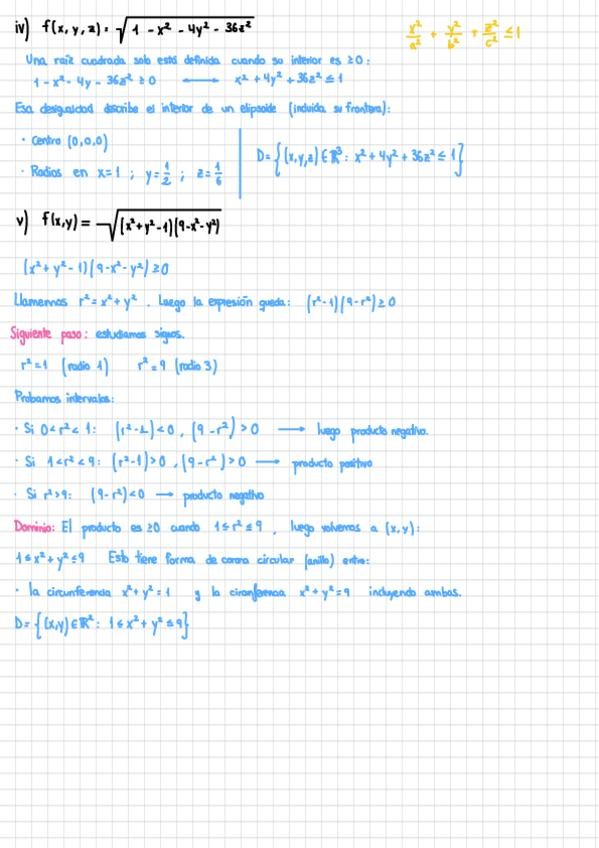 iv) f(x, y, z) = √(1 - x² - 4y² - 36z²)
x²/a² + y²/b² + z²/c² ≤ 1
Una raíz cuadrada solo está definida cuando su interior es ≥ 0:
1 - x² - 4y - 36z² ≥ 0 ⟷ x² + 4y² + 36z² ≤ 1
Esa desigualdad describe el interior de un elipsoide (incluida su frontera):
· Centro (0,0,0)
· Radios en x=1 ; y=1/2 ; z=1/6
D = {(x,y,z) ∈ ℝ³: x² + 4y² + 36z² ≤ 1}
v) f(x,y) = √((x²+y²-1)(9-x²-y²))
(x²+y²-1)(9-x²-y²) ≥ 0
Llamemos r² = x² + y². Luego la expresión queda: (r²-1)(9-r²) ≥ 0
Siguiente paso: estudiamos signos.
r² = 1 (radio 1) r² = 9 (radio 3)
Probamos intervalos:
· Si 0 < r² < 1: (r²-1) < 0 , (9-r²) > 0 ⟶ luego producto negativo.
· Si 1 < r² < 9: (r²-1) > 0 , (9-r²) > 0 ⟶ producto positivo
· Si r² > 9: (9-r²) < 0 ⟶ producto negativo
Dominio: El producto es ≥ 0 cuando 1 ≤ r² ≤ 9 , luego volvemos a (x,y):
1 ≤ x² + y² ≤ 9 Esto tiene forma de corona circular (anillo) entre:
· la circunferencia x² + y² = 1 y la circunferencia x² + y² = 9 incluyendo ambas.
D = {(x,y) ∈ ℝ²: 1 ≤ x² + y² ≤ 9}